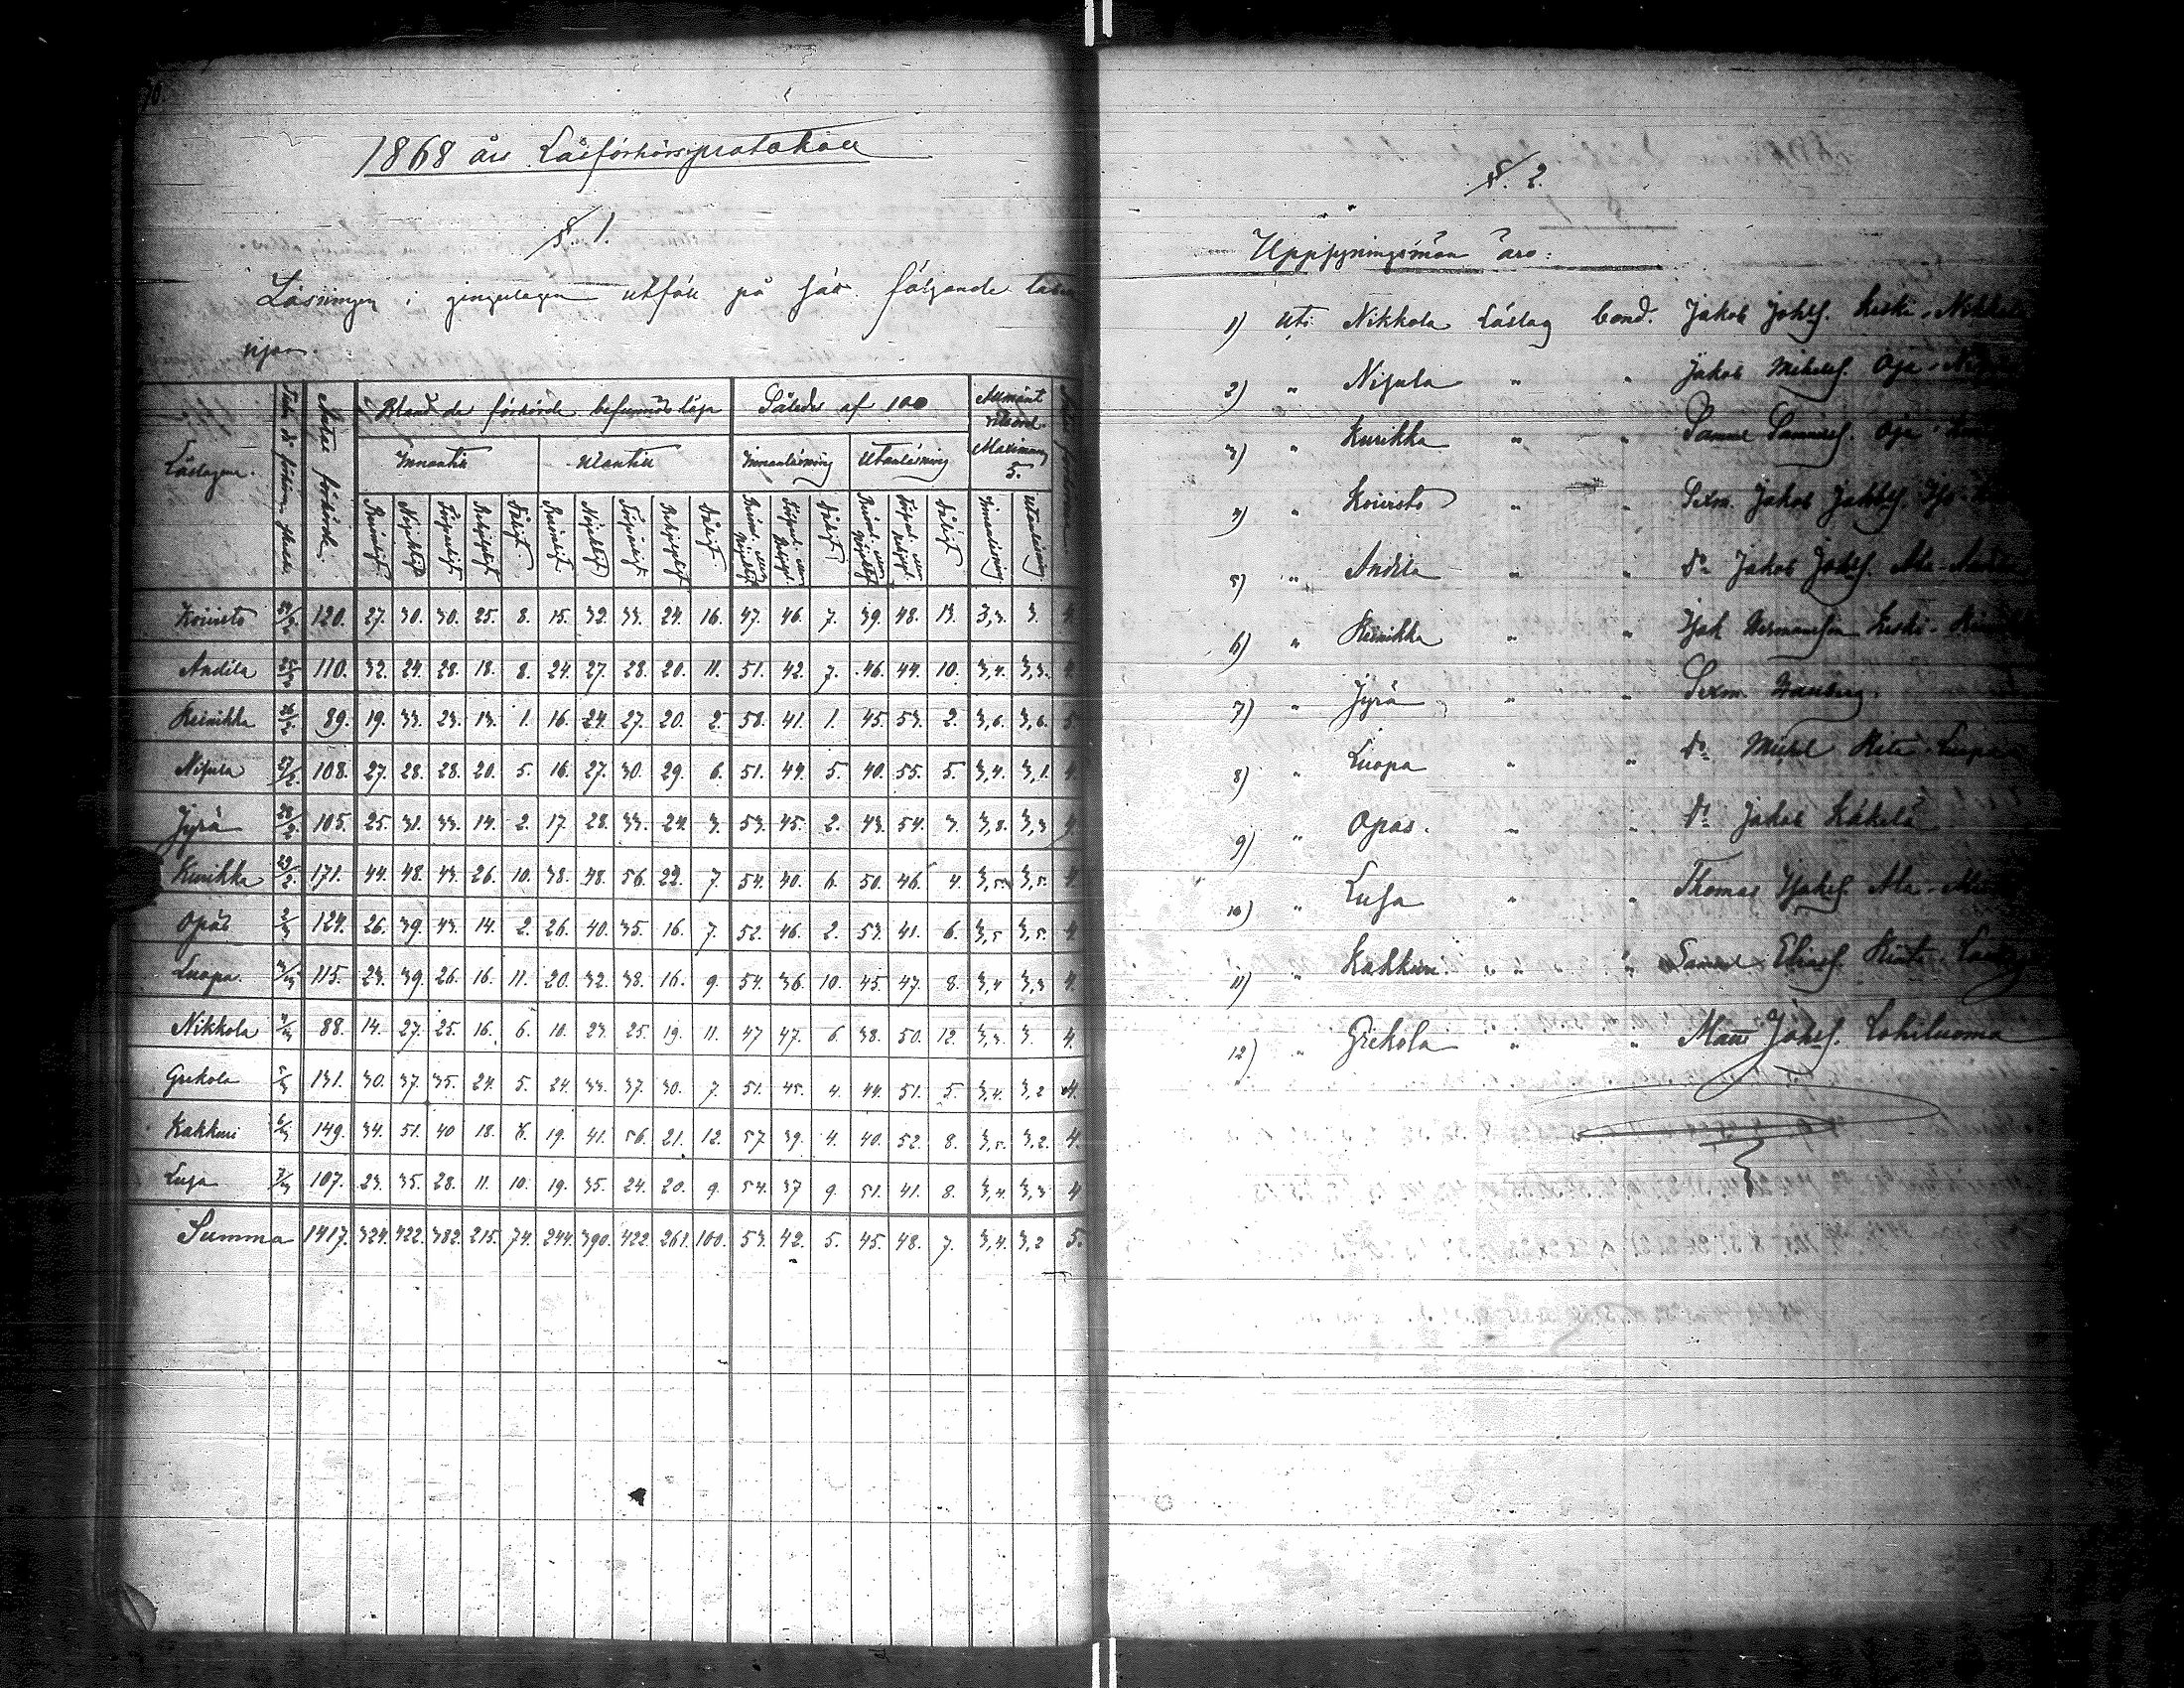 1868 års Läsförhörsprotokoll
§. 1.
Läsningen i gingerlagen utföll på sätt följande tabell
viser.
Läslagen. Antal förhörde. Bland de förhörde befunnits läsa Således af 100 Allmänt vitsord Maximum 5.
Innantill Utantill Innanläsning Utanläsning
Berömligt Nöjaktigt Försvarligt Behjelpligt Dåligt. Berömligt Nöjaktigt Försvarligt Behjelpligt Dåligt. Dåligt Dåligt Innanläsning Utanläsning
Koivisto 24/2 120. 27. 30. 30. 25. 8. 15. 32. 33. 24. 16. 47. 46. 7. 39. 48. 13. 3,3. 3. 4.
Andila 25/2 110. 32. 24. 28. 18. 8. 24. 27. 28. 20. 11. 51. 42. 7. 46. 44. 10. 3,4. 3,3. 4.
Keinikka 26/2 89. 19. 33. 23. 13. 1. 16. 24. 27. 20. 2. 58. 41. 1. 45. 53. 2. 3,6. 3,6. 5.
Nisula 27/2 108. 27. 28. 28. 20. 5. 16. 27. 30. 29. 6. 51. 44. 5. 40. 55. 5. 3,4. 3,1. 4.
Jyrä 28/2 105. 25. 31. 33. 14. 2. 17. 28. 33. 24. 3. 53. 45. 2. 43. 54. 3. 3,8. 3,3 4.
Kurikka 29/2. 171. 44. 48. 43. 26. 10. 38. 48. 56. 22. 7. 54. 40. 6. 50. 46. 4. 3,5. 3,5. 4.
Opas 2/3 124. 26. 39. 43. 14. 2. 26. 40. 35. 16. 7. 52. 46. 2. 53. 41. 6. 3,5 3,5. 4.
Luopa. 3/3 115. 23. 39. 26. 16. 11. 20. 32. 38. 16. 9. 54. 36. 10. 45. 47. 8. 3,4 3,3 4.
Nikkola 4/3 88. 14. 27. 25. 16. 6. 10. 23. 25. 19. 11. 47 47. 6. 38. 50. 12. 3,3. 3 4.
Grekola 5/3 131. 30. 37. 35. 24. 5. 24. 33. 37. 30. 7. 51. 45. 4. 44. 51. 5. 3,4. 3,2 4.
Kakkuri 6/3 149. 34. 51. 40 18. 6. 19. 41. 56. 21. 12. 57. 39. 4. 40. 52. 8. 3,5. 3,2. 4.
Luja 7/3 107. 23. 35. 28. 11. 10. 19. 35. 24. 20. 9. 54. 37 9. 51. 41. 8. 3,4. 3,3 4
Summa 1417. 324. 422. 382. 215. 74. 244. 390. 422. 261. 100. 53. 42. 5. 45. 48. 7. 3,4. 3,2 5.
§. 2.
Uppsyningsmän äro:
1) uti Nikkola Läslag bond. Jakob Johss. Keski-Nikkola
2) " Nisula " " Jakob Mikelss. Oja-
3) " Kurikka " " Samuel Samuelss. Oja
4) " Koivisto " " Sexm. Jakob Jakobss.
5) " Andila " " d:o Jakob Johss. Ala-Andila
6) " Keinikka " " Isak Hermansson Keski-
7) " Jyrä " " Sexm.
8) " Luopa " " d:o Mickel Luopa
9) " Opas. " " d:o Jakob Käkelä
10) " Luja " " Thomas Isakss. Ala-
11) " Kakkuri. " " " Samuel Eliass.
12) " Grekola " " Matts Johss. Lohiluoma